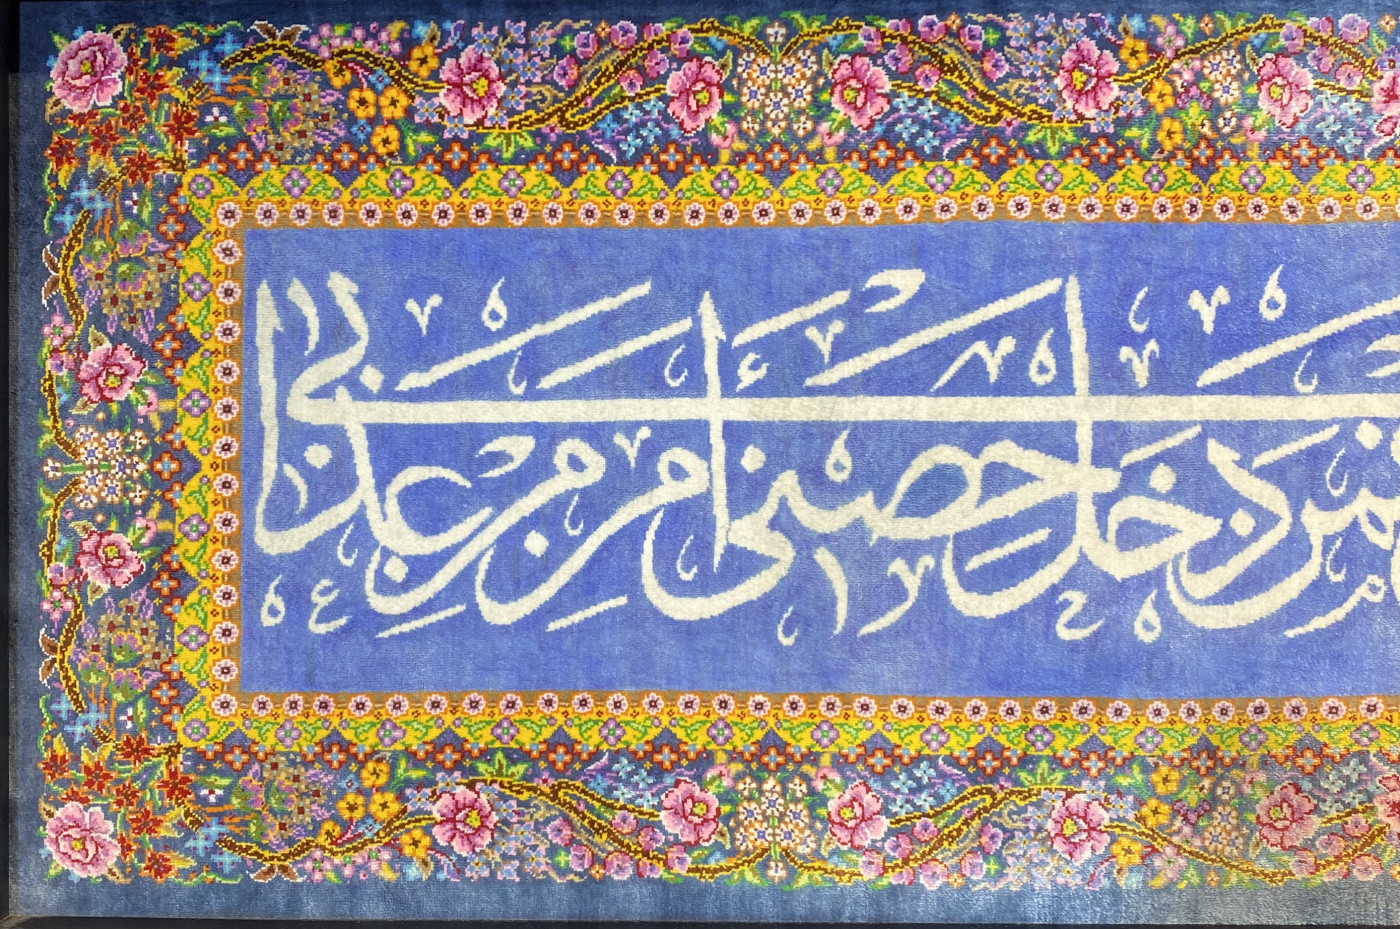 فمن دخل حصنی امن من عذابی